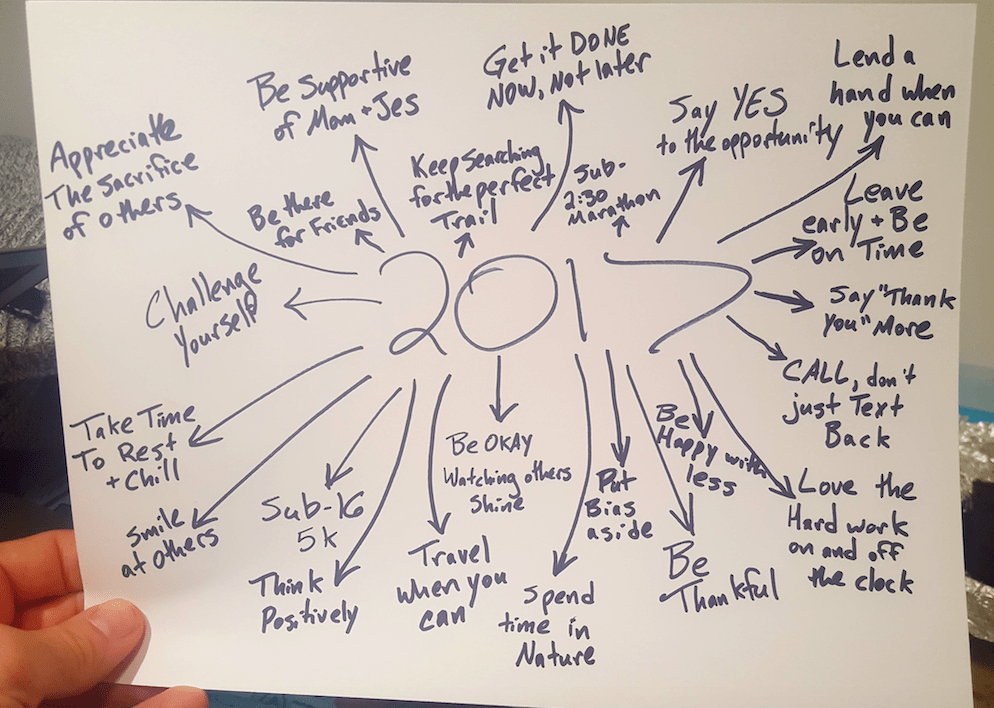 Be Supportive
of Mom + Jes
Get it DONE
NOW, Not later
Lend a
hand when
you can
Say YES
to the opportunity
Appreciate
The Sacrifice
of others
Be there
for Friends
Keep Searching
for the perfect
Trail
Sub-
2:30
Marathon
Leave
early + Be
on Time
Challenge
Yourself
2017
Say "Thank
you" More
CALL, don't
just Text
Back
Take Time
To Rest
+ Chill
Smile
at Others
Sub-16
5k
Think
Positively
Be OKAY
Watching others
Shine
Travel
when you
can
Spend
time in
Nature
Put
Bias
aside
Be
Happy with
less
Be
Thankful
Love the
Hard work
on and off
the clock